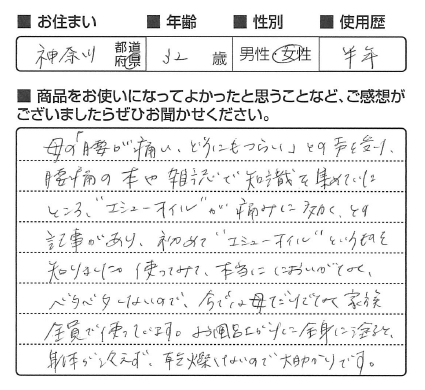 ■ お住まい ■ 年齢 ■ 性別 ■ 使用歴
神奈川 都道府県 32 歳 男性・女性 半年
■ 商品をお使いになってよかったと思うことなど、ご感想が
ございましたらぜひお聞かせください。
母の「腰が痛い、どうにもつらい」との声を受け、
腰痛の本や雑誌で知識を集めていた
ところ、"エミューオイル"が痛みに効く、との
記事があり、初めて"エミューオイル"というものを
知りました。使ってみて、本当ににおいがなく、
ベタベタしないので、今では母だけでなく家族
全員で使っています。お風呂上がりに全身に塗ると、
身体が冷えず、乾燥しないので大助かりです。